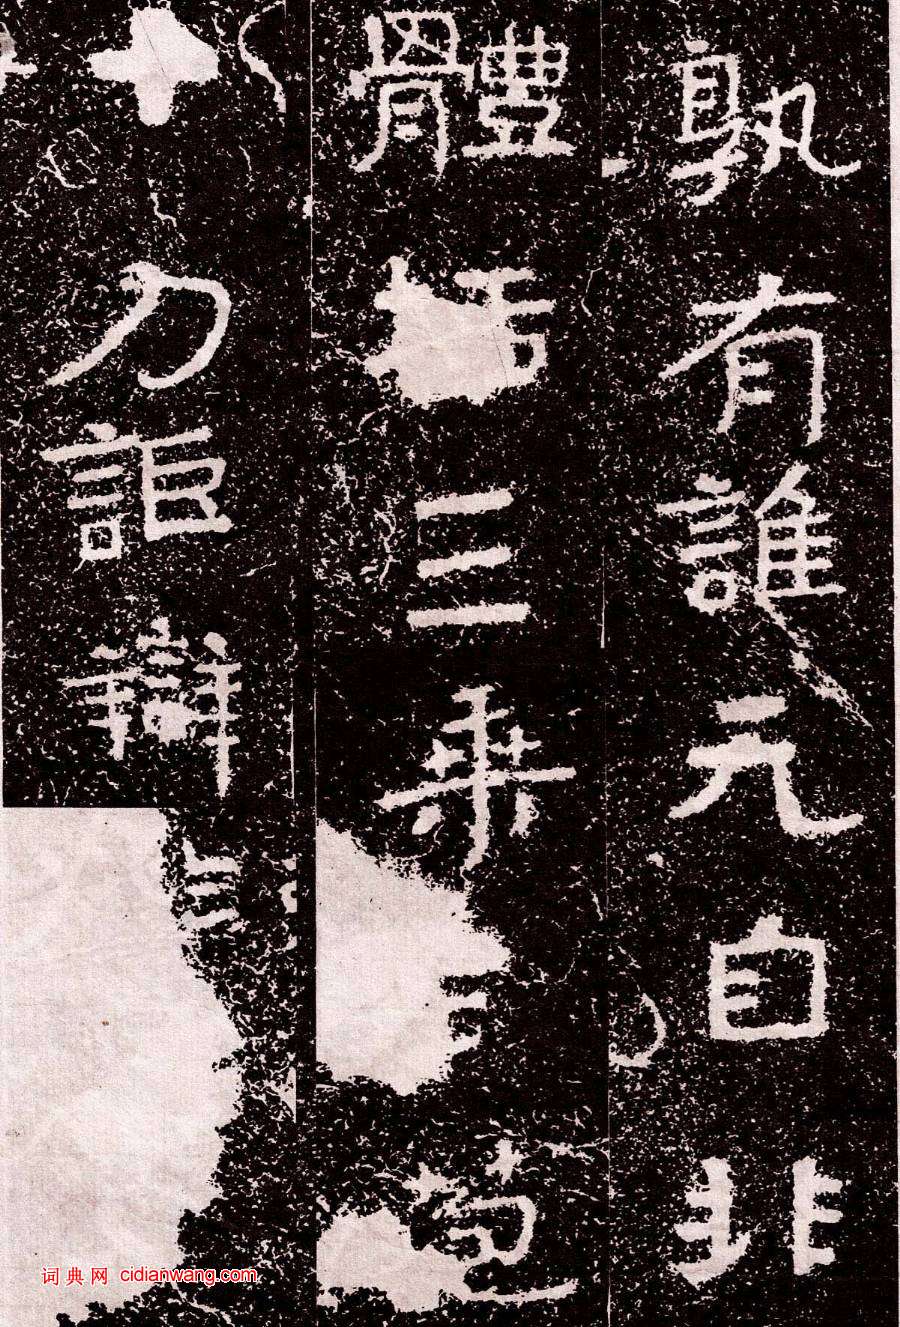 孰有誰元自非
體三乘苞
十力詎辯
词典网 cidianwang.com